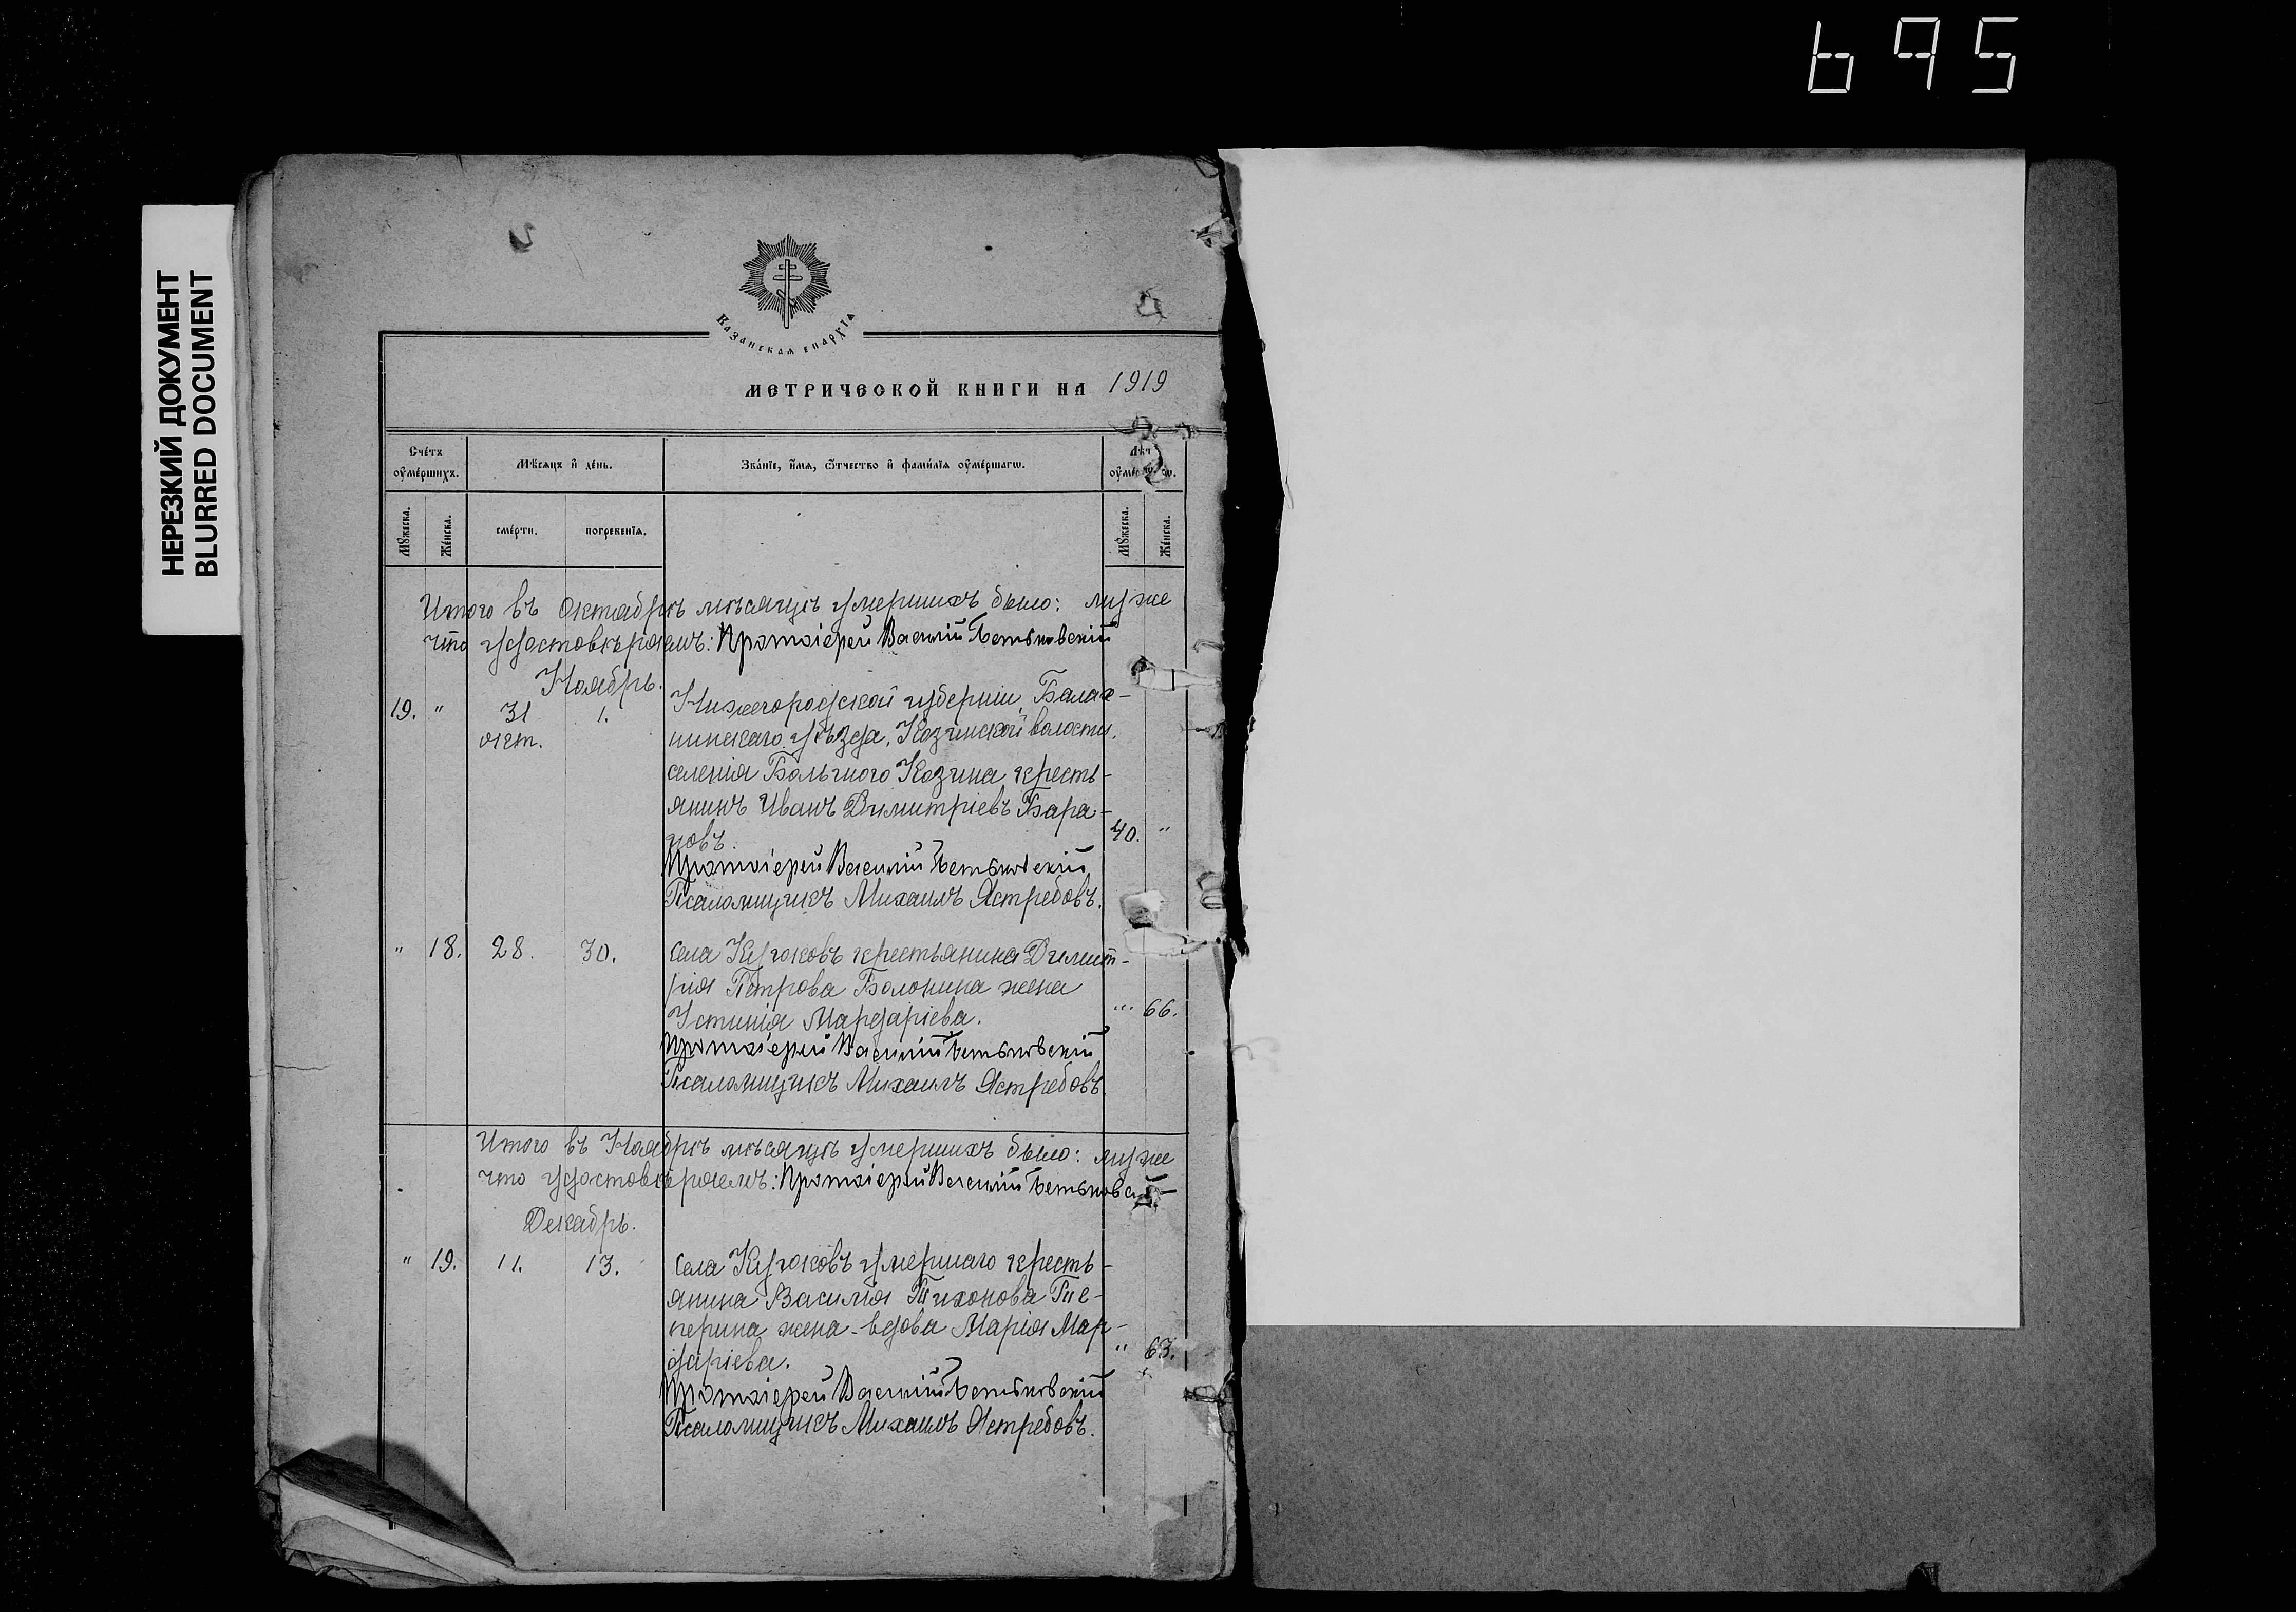 695
НЕРЕЗКИЙ ДОКУМЕНТ
BLURRED DOCUMENT
Казанская епархїѧ
МЕТРИЧЕСКОЙ КНИГИ НА 1919
Счéтъ оумéршихъ.
Мѣсяцъ и дéнь.
Звáнїе, имѧ, óтчество и фамилїѧ оумéршагѡ.
Лѣт
Мꙋжеска.
Жéнска.
смéрти.
погребенїѧ.
Мꙋжеска.
Жéнска.
Итого въ Октябрѣ мѣсяцѣ умершихъ было: муже
что удостовѣряемъ: Протоіерей Василій
Ноябрь.
19. " 31 окт. 1. Нижегородской губерніи, Балах-
нинскаго уѣзда, Козинской волости,
селенія Большого Козина кресть-
янинъ Иванъ Димитріевъ Бара-
новъ. 40. "
Протоіерей Василій
Псаломщикъ Михаилъ Ястребовъ.
" 18. 28. 30. Села крестьянина Димит-
рія Петрова Болонина жена
Устинія Мардаріева. " 66.
Протоіерей Василій
Псаломщикъ Михаилъ Ястребовъ
Итого въ Ноябрѣ мѣсяцѣ умершихъ было: муже
что удостовѣряемъ: Протоіерей Василій
Декабрь.
" 19. 11. 13. Села умершаго кресть-
янина Василія Тихонова
жена-вдова Марія Мар-
даріева. " 63.
Протоіерей Василій
Псаломщикъ Михаилъ Ястребовъ.